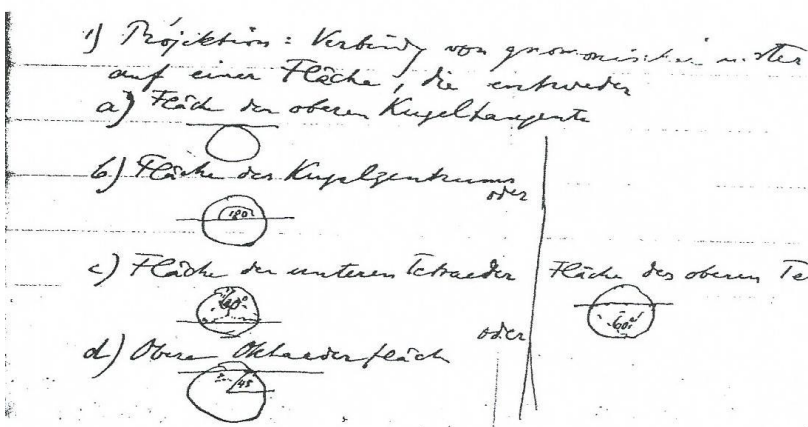 1) Projektion = Verbindg von gnomonischer u. ster
auf einer Fläche, die entweder
a) Fläche der oberen Kugeltangente
b) Fläche des Kugelzentrums
oder
180
c) Fläche der unteren Tetraeder
Fläche des oberen Te
60°
oder
d) Obere Oktaederfläch
45